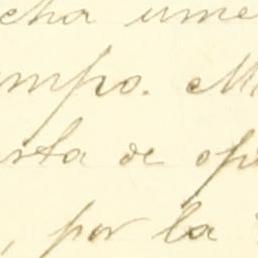 cha ume
mpo. M
sta de op
, por la